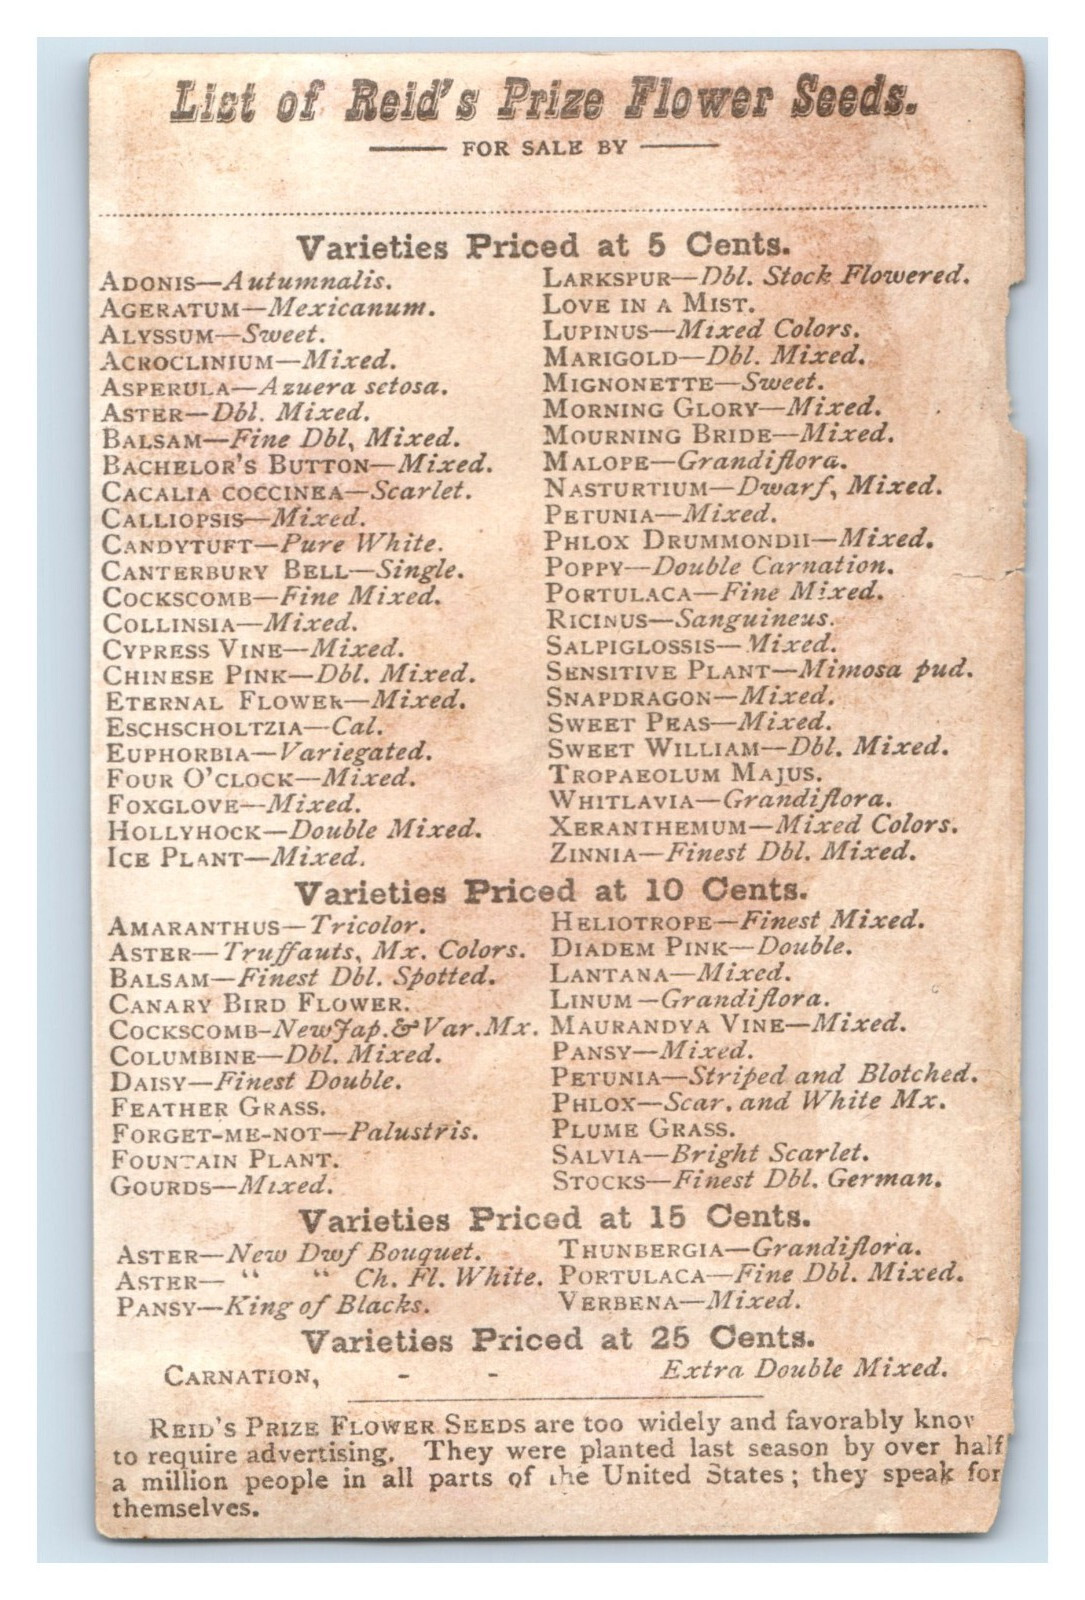 List of Reid's Prize Flower Seeds.
FOR SALE BY
Varieties Priced at 5 Cents.
ADONIS—Autumnalis.
AGERATUM—Mexicanum.
ALYSSUM—Sweet.
ACROCLINIUM—Mixed.
ASPERULA—Azuera setosa.
ASTER—Dbl. Mixed.
BALSAM—Fine Dbl, Mixed.
BACHELOR'S BUTTON—Mixed.
CACALIA COCCINEA—Scarlet.
CALLIOPSIS—Mixed.
CANDYTUFT—Pure White.
CANTERBURY BELL—Single.
COCKSCOMB—Fine Mixed.
COLLINSIA—Mixed.
CYPRESS VINE—Mixed.
CHINESE PINK—Dbl. Mixed.
ETERNAL FLOWER—Mixed.
ESCHSCHOLTZIA—Cal.
EUPHORBIA—Variegated.
FOUR O'CLOCK—Mixed.
FOXGLOVE—Mixed.
HOLLYHOCK—Double Mixed.
ICE PLANT—Mixed.
LARKSPUR—Dbl. Stock Flowered.
LOVE IN A MIST.
LUPINUS—Mixed Colors.
MARIGOLD—Dbl. Mixed.
MIGNONETTE—Sweet.
MORNING GLORY—Mixed.
MOURNING BRIDE—Mixed.
MALOPE—Grandiflora.
NASTURTIUM—Dwarf, Mixed.
PETUNIA—Mixed.
PHLOX DRUMMONDII—Mixed.
POPPY—Double Carnation.
PORTULACA—Fine Mixed.
RICINUS—Sanguineus.
SALPIGLOSSIS—Mixed.
SENSITIVE PLANT—Mimosa pud.
SNAPDRAGON—Mixed.
SWEET PEAS—Mixed.
SWEET WILLIAM—Dbl. Mixed.
TROPAEOLUM MAJUS.
WHITLAVIA—Grandiflora.
XERANTHEMUM—Mixed Colors.
ZINNIA—Finest Dbl. Mixed.
Varieties Priced at 10 Cents.
AMARANTHUS—Tricolor.
ASTER—Truffauts, Mx. Colors.
BALSAM—Finest Dbl. Spotted.
CANARY BIRD FLOWER.
COCKSCOMB-New Jap. & Var. Mx.
COLUMBINE—Dbl. Mixed.
DAISY—Finest Double.
FEATHER GRASS.
FORGET-ME-NOT—Palustris.
FOUNTAIN PLANT.
GOURDS—Mixed.
HELIOTROPE—Finest Mixed.
DIADEM PINK—Double.
LANTANA—Mixed.
LINUM—Grandiflora.
MAURANDYA VINE—Mixed.
PANSY—Mixed.
PETUNIA—Striped and Blotched.
PHLOX—Scar. and White Mx.
PLUME GRASS.
SALVIA—Bright Scarlet.
STOCKS—Finest Dbl. German.
Varieties Priced at 15 Cents.
ASTER—New Dwf Bouquet.
ASTER— " " Ch. Fl. White.
PANSY—King of Blacks.
THUNBERGIA—Grandiflora.
PORTULACA—Fine Dbl. Mixed.
VERBENA—Mixed.
Varieties Priced at 25 Cents.
CARNATION, - - Extra Double Mixed.
REID'S PRIZE FLOWER SEEDS are too widely and favorably know
to require advertising. They were planted last season by over half
a million people in all parts of the United States; they speak for
themselves.